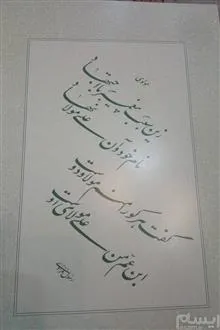 مولوی
زین سبب پیغمبر با اجتهاد
نام خود وان علی مولا نهاد
گفت هر کو را منم مولا و دوست
ابن عم من علی مولای اوست
ایسام